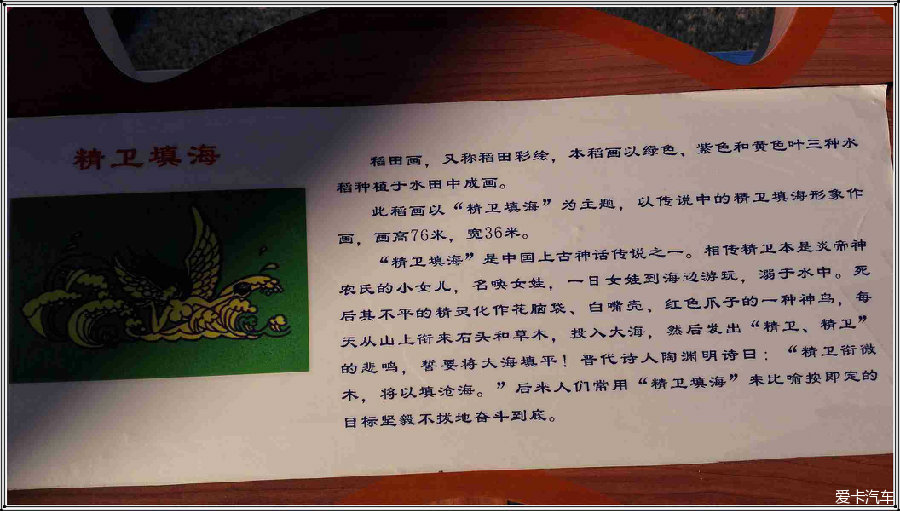 精卫填海
稻田画，又称稻田彩绘，本稻画以绿色，紫色和黄色叶三种水
稻种植于水田中成画。
此稻画以“精卫填海”为主题，以传说中的精卫填海形象作
画，画高76米，宽36米。
“精卫填海”是中国上古神话传说之一。相传精卫本是炎帝神
农氏的小女儿，名唤女娃，一日女娃到海边游玩，溺于水中。死
后其不平的精灵化作花脑袋、白嘴壳，红色爪子的一种神鸟，每
天从山上衔来石头和草木，投入大海，然后发出“精卫、精卫”
的悲鸣，誓要将大海填平！晋代诗人陶渊明诗曰：“精卫衔微
木，将以填沧海。”后来人们常用“精卫填海”来比喻按即定的
目标坚毅不拔地奋斗到底。
爱卡汽车